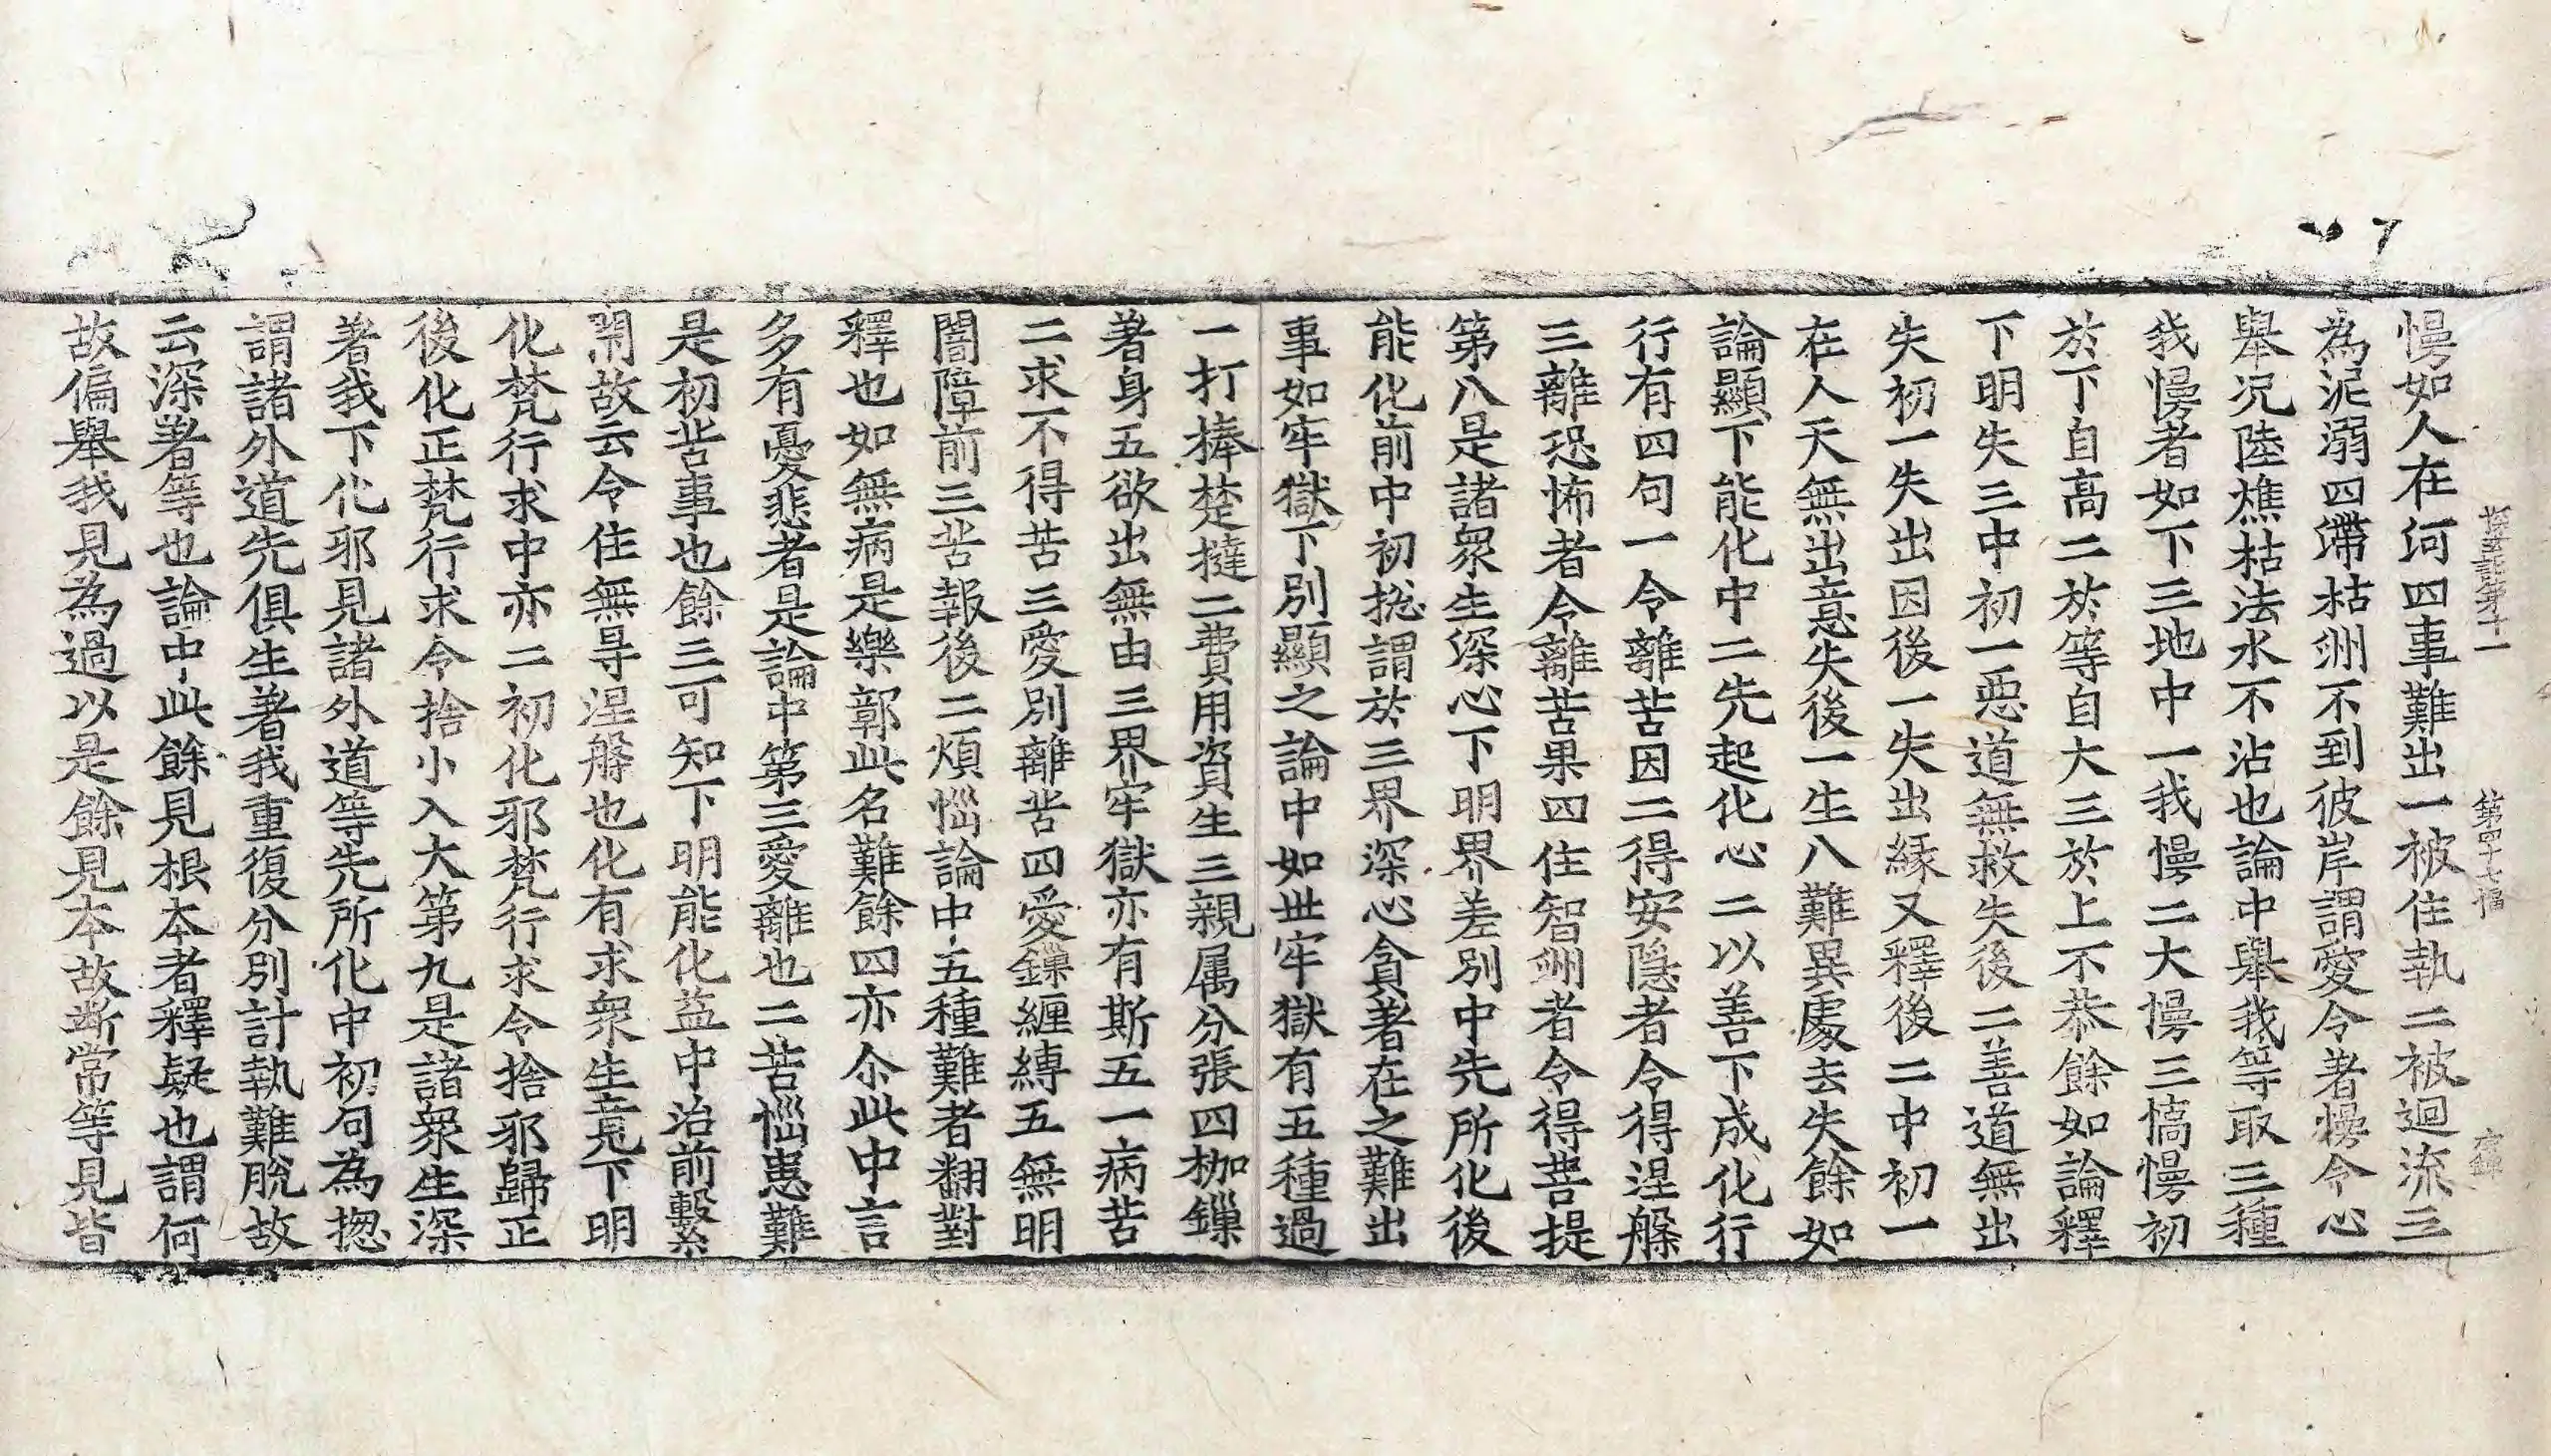 探玄記第十一 第四十七幅 宿鐸
慢如人在河四事難出一被住執二被迴流三
為泥溺四滯枯洲不到彼岸謂愛令著慢令心
舉况陸燋枯法水不沾也論中舉我等取三種
我慢者如下三地中一我慢二大慢三憍慢初
於下自高二於等自大三於上不恭餘如論釋
下明失三中初一惡道無救失後二善道無出
失初一失出因後一失出緣又釋後二中初一
在人天無出意失後一生八難異處去失餘如
論顯下能化中二先起化心二以善下成化行
行有四句一令離苦因二得安隱者令得涅槃
三離恐怖者令離苦果四住智洲者令得菩提
第八是諸眾生深心下明界差別中先所化後
能化前中初捴謂於三界深心貪著在之難出
事如牢獄下別顯之論中如世牢獄有五種過
一打捧楚撻二費用資生三親属分張四枷鏁
著身五欲出無由三界牢獄亦有斯五一病苦
二求不得苦三愛別離苦四愛鏁纏縛五無明
闇障前三苦報後二煩惱論中五種難者翻對
釋也如無病是樂鄣此名難餘四亦尒此中言
多有憂悲者是論中第三愛離也二苦惱患難
是初苦事也餘三可知下明能化益中治前繫
閉故云令住無㝵涅槃也化有求衆生竟下明
化梵行求中亦二初化邪梵行求令捨邪歸正
後化正梵行求令捨小入大第九是諸衆生深
著我下化邪見諸外道等先所化中初句為揔
謂諸外道先俱生著我重復分別計執難脫故
云深著等也論中此餘見根本者釋疑也謂何
故偏舉我見為過以是餘見本故断常等見皆